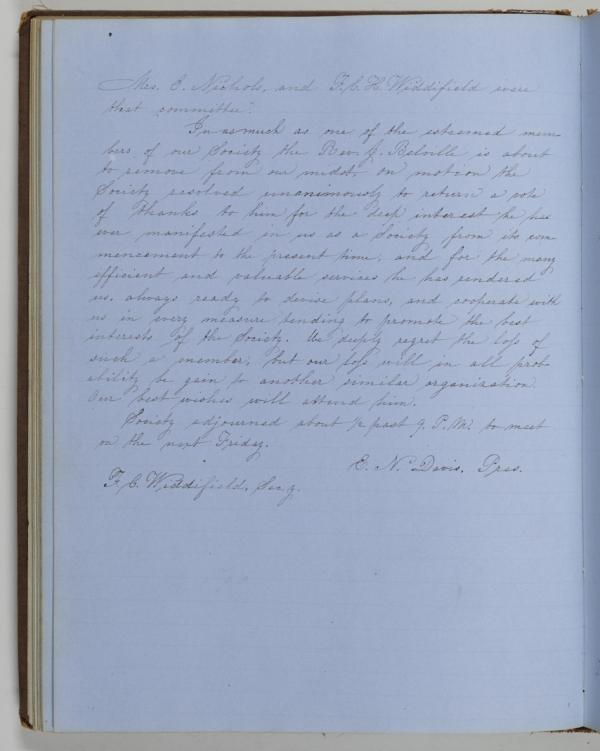 Mrs. E. Nichols, and F. C. H. Widdifield were
that committee.
In as much as one of the esteemed mem-
bers of our Society the Rev. J. Belville is about
to remove from our midst, on motion the
Society resolved unanimously to return a vote
of thanks to him for the deep interest he has
ever manifested in us as a Society from its com-
mencement to the present time, and for the many
efficient and valuable services he has rendered
us, always ready to devise plans, and cooperate with
us in every measure tending to promote the best
interests of the Society. We deeply regret the loss of
such a member, but our loss will in all prob-
ability be gain to another similar organization.
Our best wishes will attend him.
Society adjourned about ½ past 9. P.M. to meet
on the next Friday.
E. N. Davis, Pres.
F. C. Widdifield, Sec.y.